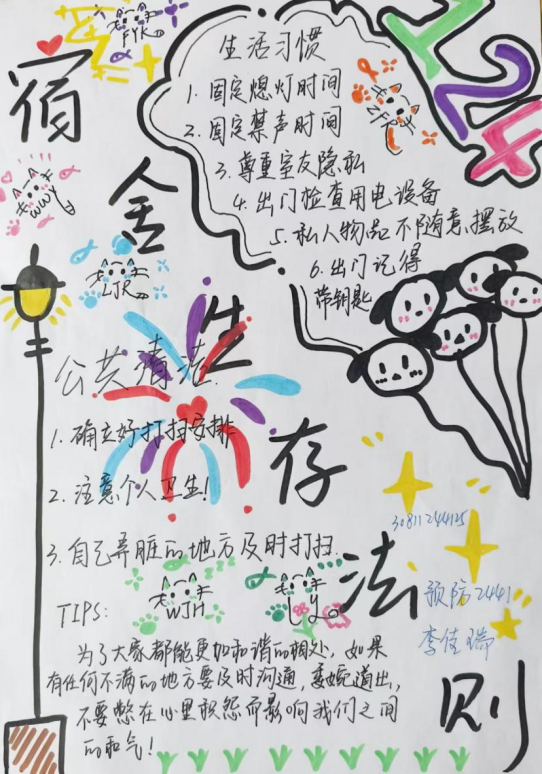 宿舍生存法则
124
FYK
WWY
LJR
ZFR
生活习惯
1. 固定熄灯时间
2. 固定禁声时间
3. 尊重室友隐私
4. 出门检查用电设备
5. 私人物品不随意摆放
6. 出门记得
带钥匙
公共清洁
1. 确立好打扫安排
2. 注意个人卫生!
3. 自己弄脏的地方及时打扫.
WJH
LY
TIPS:
为了大家都能更加和谐的相处，如果
有任何不满的地方要及时沟通，委婉道出，
不要憋在心里积怨而影响我们之间
的和气!
30811244125
预防2441
李佳瑞